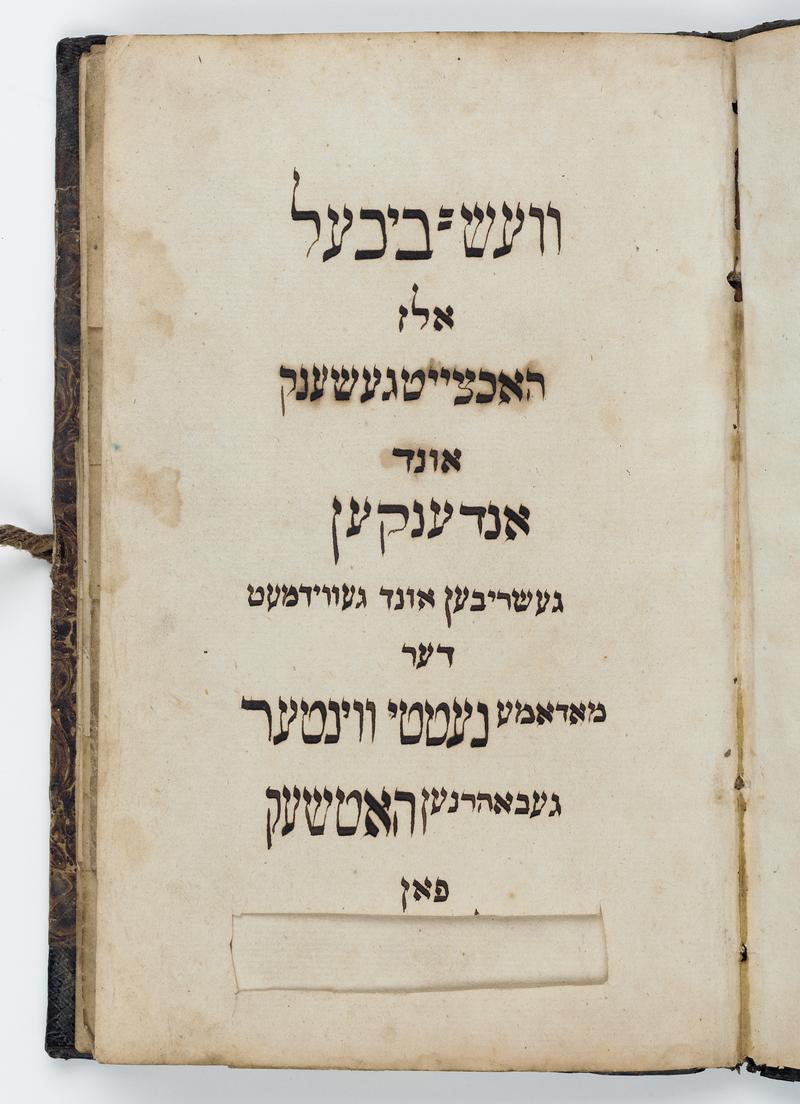 וועש=ביכעל
אלז
האכצייטגעשענק
אונד
אנדענקען
געשריבען אונד געווידמעט
דער
מאדאמע נעטטי ווינטער
געבאהרנען האטשעק
פאן